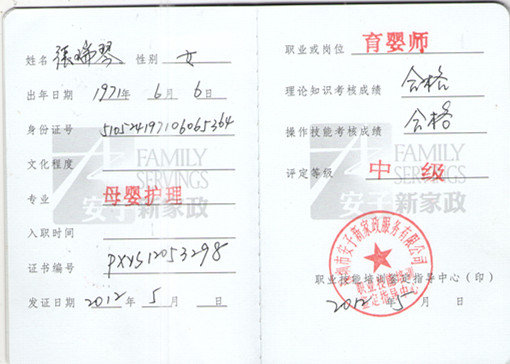 姓名 張瑞琴 性别 女
出年日期 1971年 6月 6日
身份证号 510524197106065364
文化程度
专业 母婴护理
入职时间
证书编号 PXYS12053298
发证日期 2012年 5月 日
FAMILY
SERVINGS
安子新家政
职业或岗位 育婴师
理论知识考核成绩 合格
操作技能考核成绩 合格
评定等级 中级
FAMILY
SERVINGS
安子新家政
市安子新家政服务有限公司
职业技能培训
鉴定指导中心
职业技能培训鉴定指导中心(印)
2012年5月 日